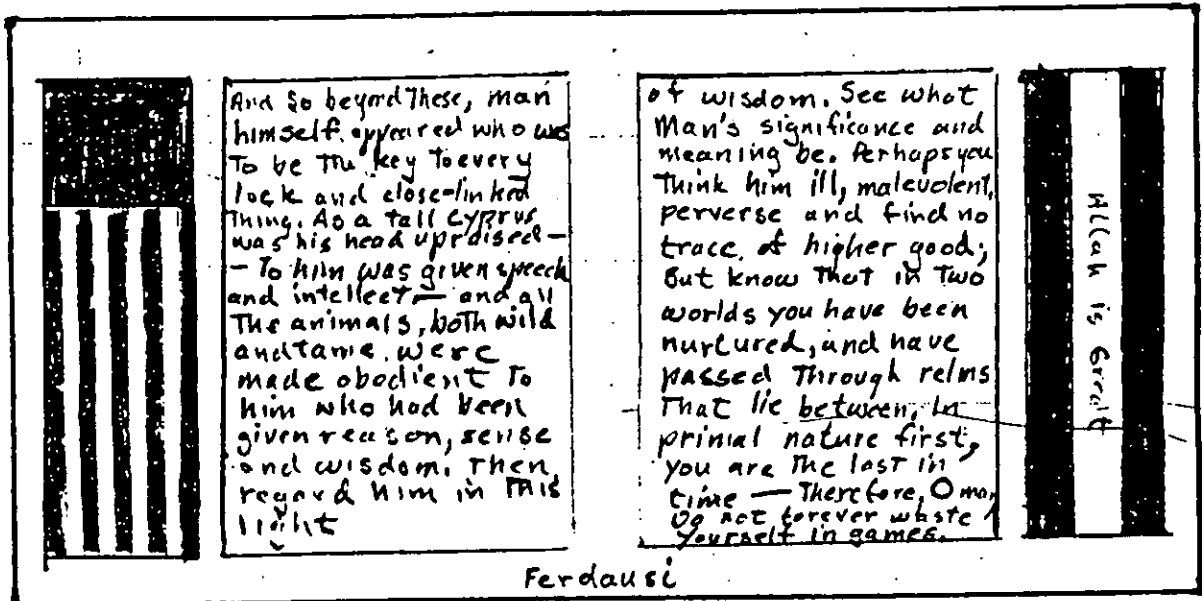 And So beyond These, man
himself. appeared who was
To be The key To every
lock and close-linked
Thing. As a tall Cyprus
was his head upraised —
- To him was given speech
and intellect — and all
The animals, both wild
and tame, were
made obodient To
him who had been
given reason, sense
and wisdom. Then,
regard him in This
light
of wisdom. See what
Man's significance and
meaning be. Perhaps you
Think him ill, malevolent,
perverse and find no
trace of higher good;
But know That in Two
worlds you have been
nurtured, and have
passed Through relms
That lie between. In
primal nature first,
you are The last in
time — Therefore, O man,
Do not forever waste
Yourself in games.
Allah is Great
Ferdausi